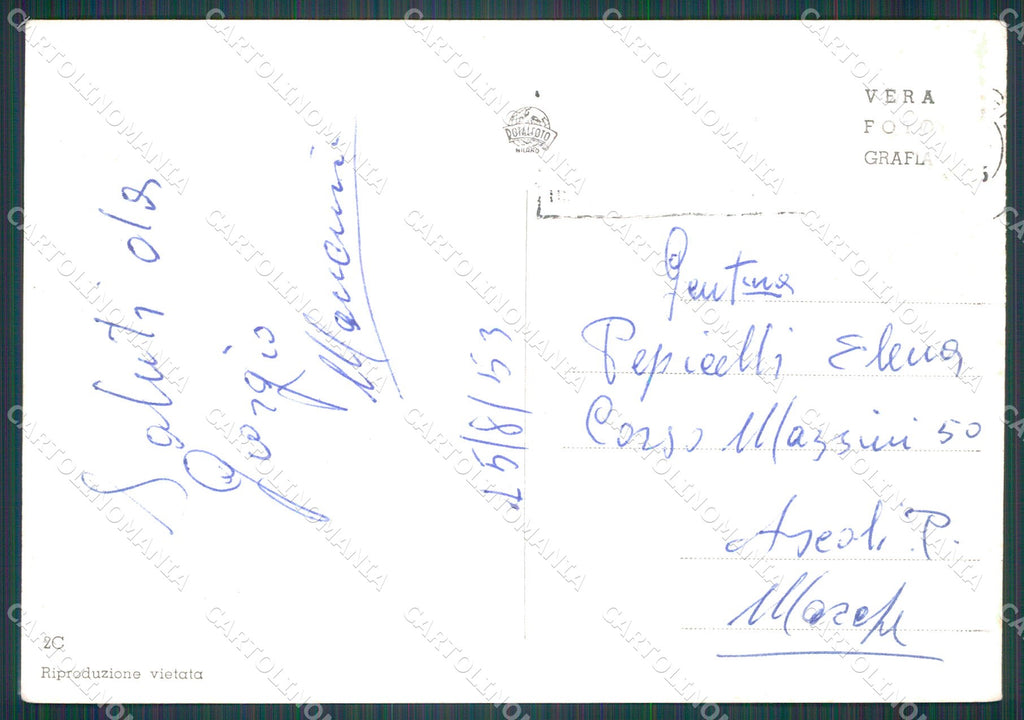 VERA
FOTO
GRAFIA
ROTALFOTO
MILANO
Saluti da
Giorgio
Mancini
15/8/53
Gent.ma
Pepicelli Elena
Corso Mazzini 50
Ascoli P.
Marche
2C
Riproduzione vietata
CARTOLINOMANIA